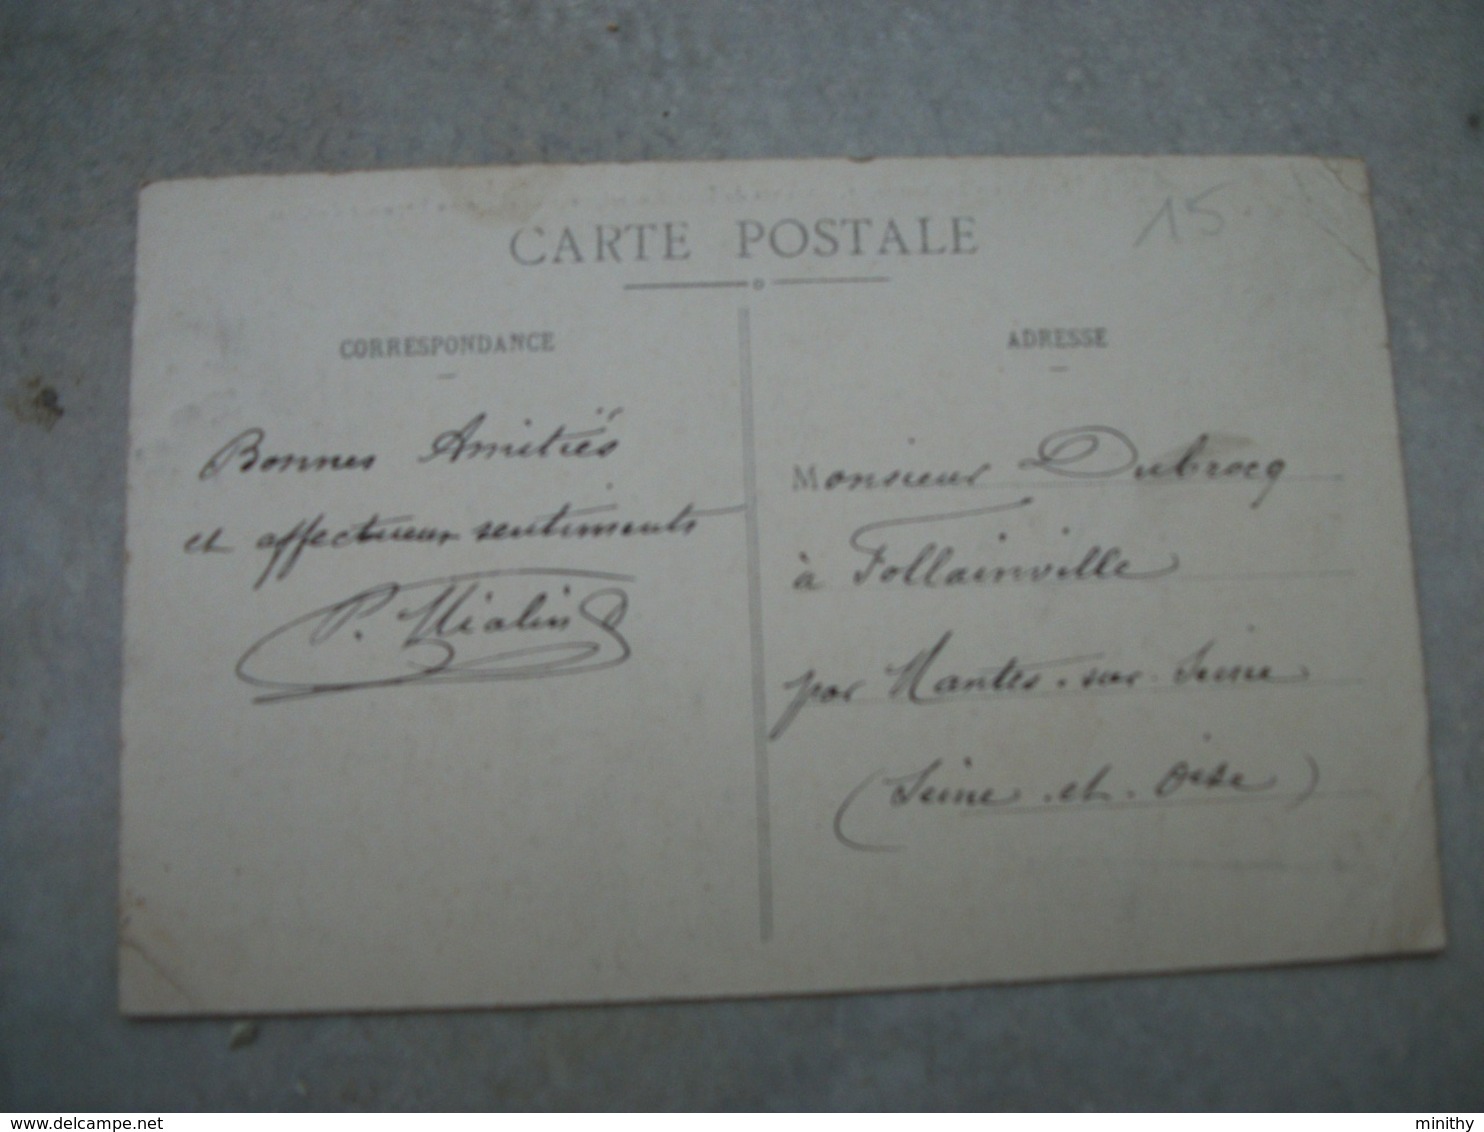 CARTE POSTALE
15
CORRESPONDANCE
Bonnes Amitiés
et affectueux sentiments
P. Mialin
ADRESSE
Monsieur Dubrocq
à Follainville
par Mantes-sur-Seine
(Seine-et-Oise)
Delcampe.net
minithy